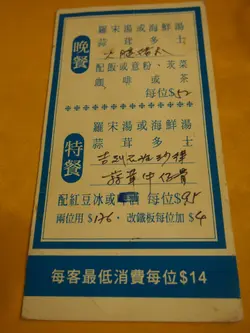 晚餐
羅宋湯或海鮮湯
蒜茸多士
火腿
配飯或意粉、茨菜
咖啡或茶
每位$52
特餐
羅宋湯或海鮮湯
蒜茸多士
吉列石班沙律
蒜茸牛仔骨
配紅豆冰或 每位$95
兩位用$176. 改鐵板每位加$4
每客最低消費每位$14